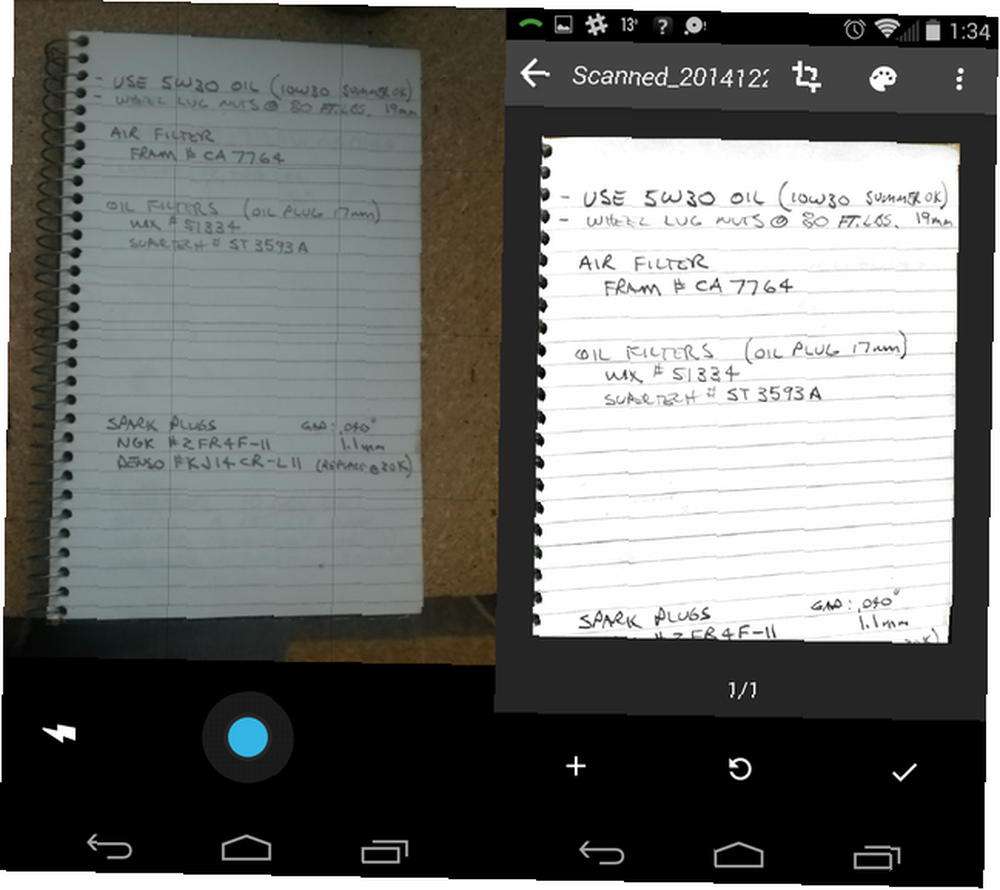 - USE 5W30 OIL (10W30 SUMMER OK)
- WHEEL LUG NUTS @ 80 FT.LBS. 19mm
AIR FILTER
FRAM # CA 7764
OIL FILTERS (OIL PLUG 17mm)
WIX # 51334
SUPERTECH # ST3593A
SPARK PLUGS GAP: .040"
NGK #ZFR4F-11 1.1mm
DENSO #KJ14CR-L11 (REPLACE @ 30K)
13° 1:34
Scanned_2014122
- USE 5W30 OIL (10W30 SUMMER OK)
- WHEEL LUG NUTS @ 80 FT.LBS. 19mm
AIR FILTER
FRAM # CA 7764
OIL FILTERS (OIL PLUG 17mm)
WIX # 51334
SUPERTECH # ST3593A
SPARK PLUGS GAP: .040"
#ZFR4F-11 1.1mm
1/1